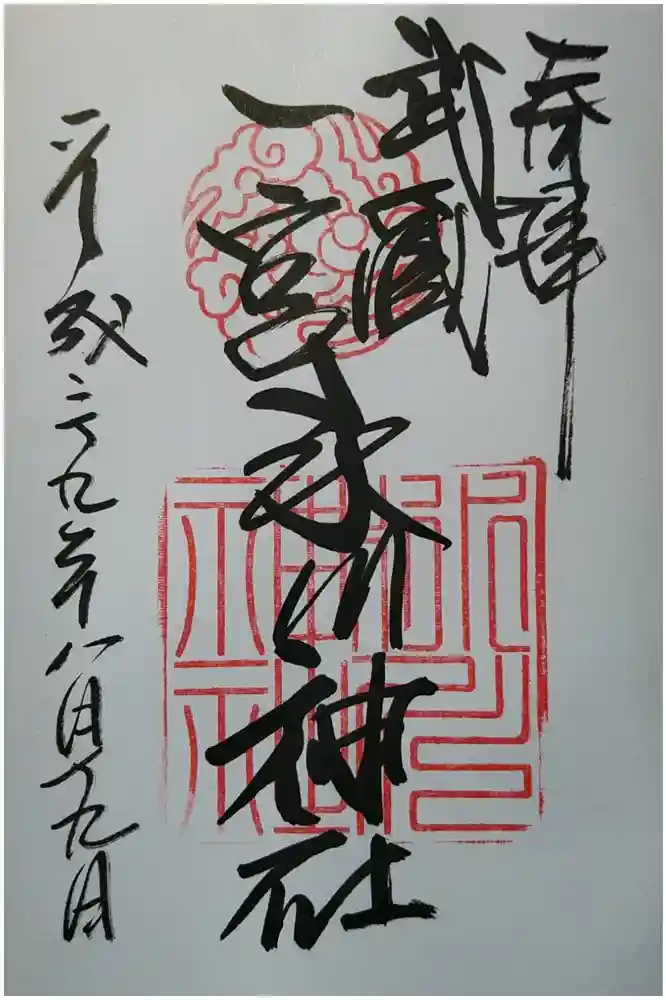 奉拝
武蔵國
一宮氷川神社
平成二十九年八月十九日